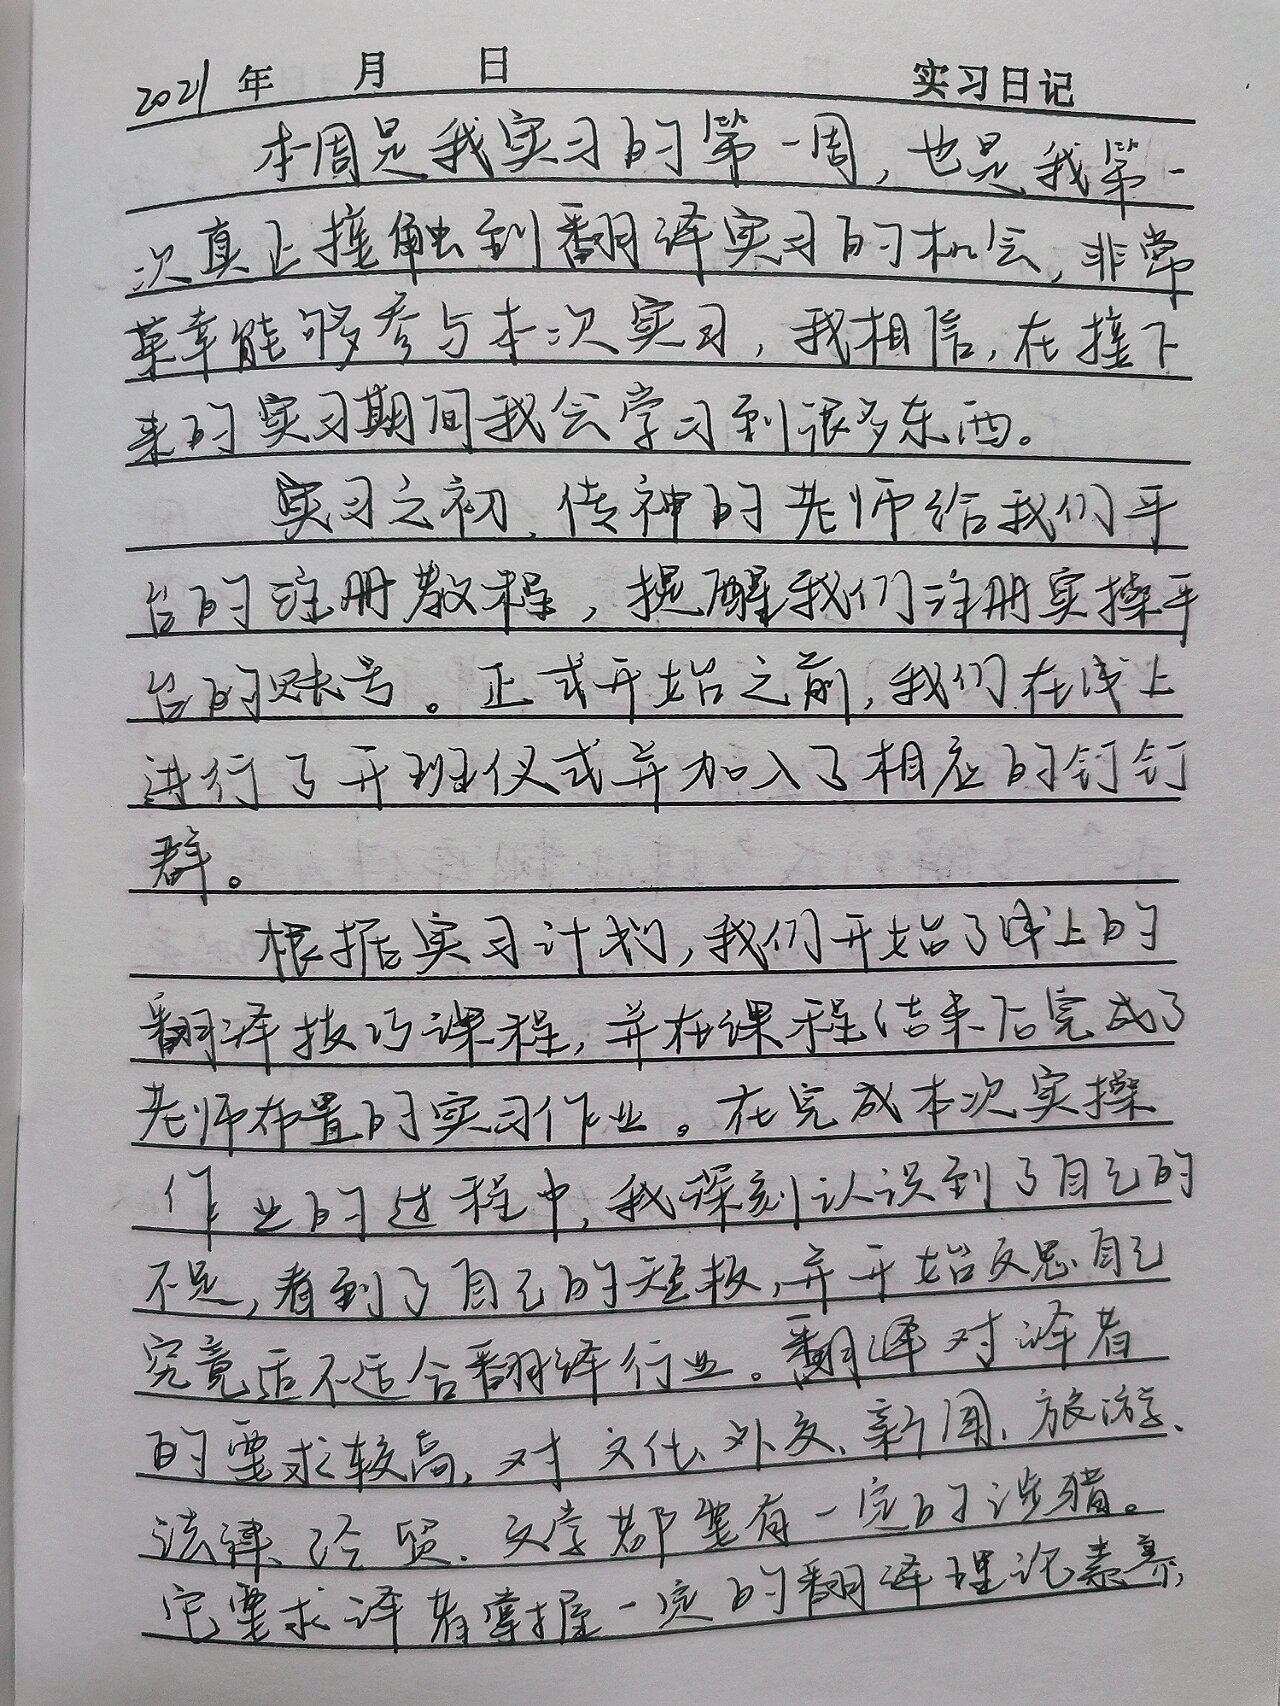 2021 年 月 日 实习日记
本周是我实习的第一周，也是我第一
次真正接触到翻译实习的机会，非常
荣幸能够参与本次实习，我相信，在接下
来的实习期间我会学习到很多东西。
实习之初，传神的老师给我们平
台的注册教程，提醒我们注册实操平
台的账号。正式开始之前，我们在线上
进行了开班仪式并加入了相应的钉钉
群。
根据实习计划，我们开始了线上的
翻译技巧课程，并在课程结束后完成了
老师布置的实习作业。在完成本次实操
作业的过程中，我深刻认识到了自己的
不足，看到了自己的短板，并开始反思自己
究竟适不适合翻译行业。翻译对译者
的要求较高，对文化、外交、新闻、旅游、
法律、经贸、文学都要有一定的涉猎。
它要求译者掌握一定的翻译理论素养，